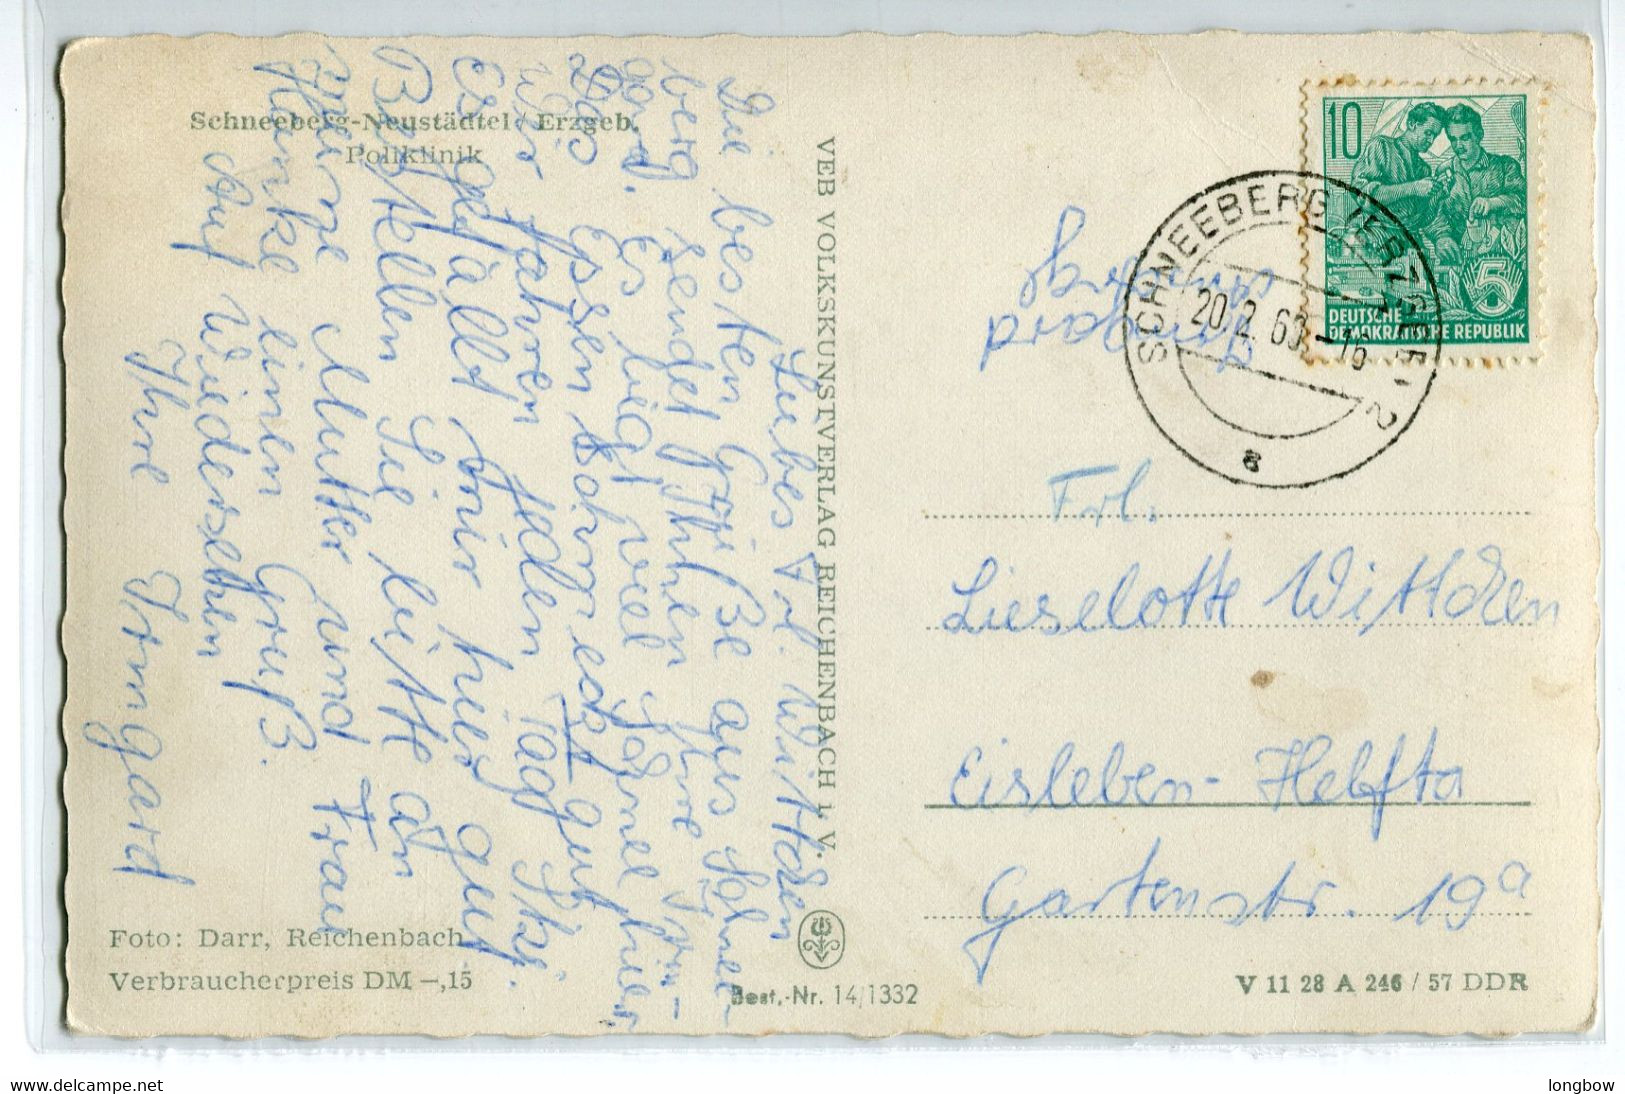 Schneeberg-Neustädtel / Erzgeb.
Poliklinik
Liebes Frl. Wittchen
Die besten Grüße aus Schnee-
berg sendet Ihnen Ihre Irm-
gard. Es liegt viel Schnee hier.
Das Essen sehr gut
Wir fahren jeden Tag Ski.
Es gefällt mir hier gut.
Bestellen Sie bitte an
meine Mutter und Frau
einen Gruß.
Auf Wiedersehen
Ihre Irmgard
Foto: Darr, Reichenbach
Verbraucherpreis DM –,15
VEB VOLKSKUNSTVERLAG REICHENBACH i. V.
Best.-Nr. 14/1332
10
DEUTSCHE
DEMOKRATISCHE REPUBLIK
5
SCHNEEBERG (ERZGEB) 2
20.2.60–16
a
Irmgard
Frl.
Lieselotte Wittchen
Eisleben-Helfta
Gartenstr. 19a
V 11 28 A 246 / 57 DDR
delcampe.net
longbow